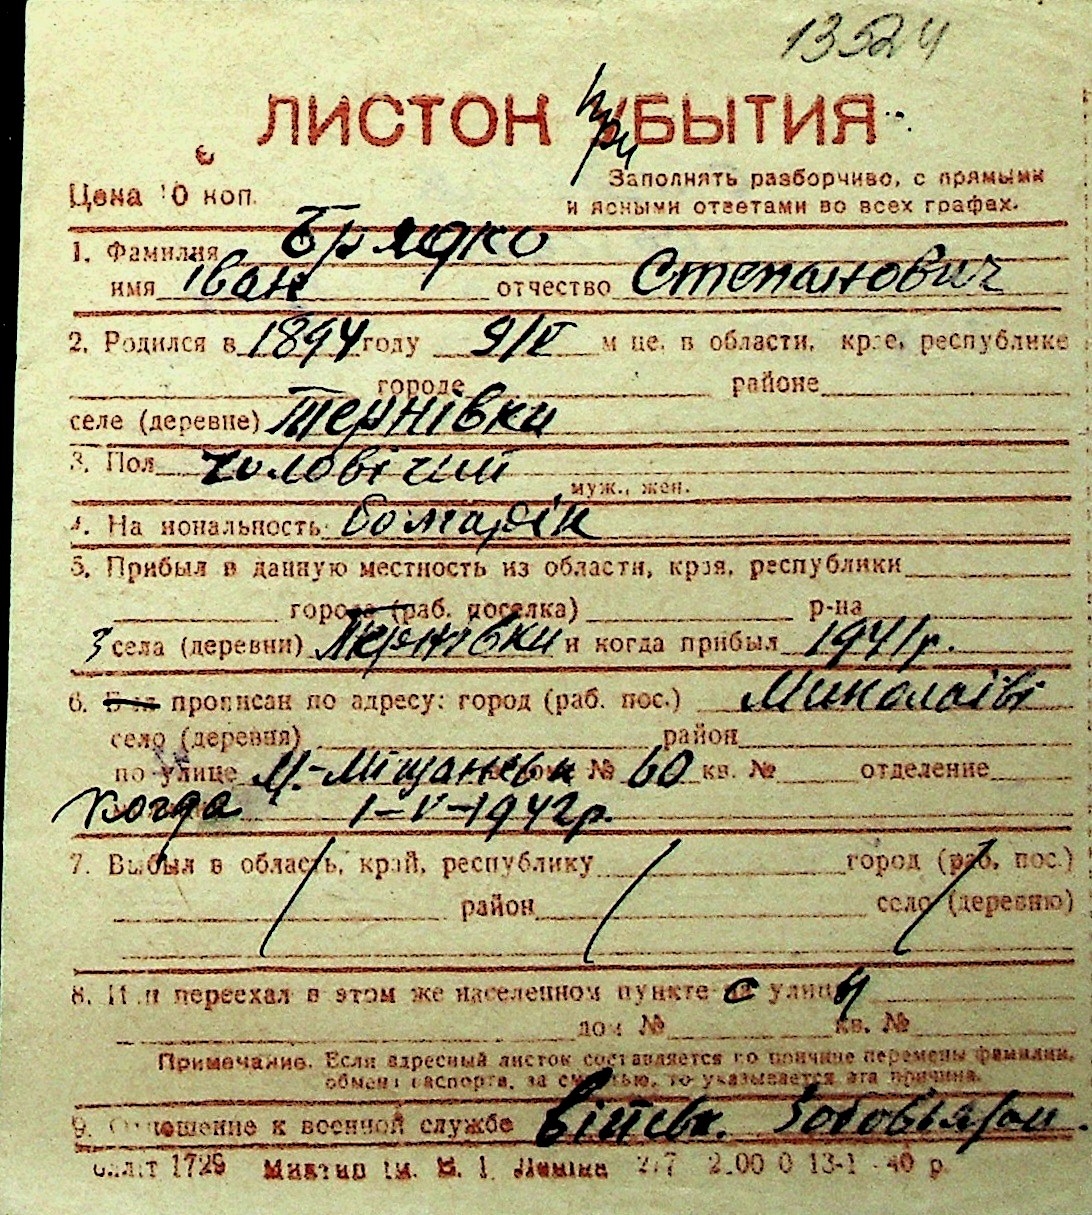 13524
ЛИСТОК При УБЫТИЯ
Цена 10 коп. Заполнять разборчиво, с прямыми
и ясными ответами во всех графах.
1. Фамилия Брядко
имя Іван отчество Степанович
2. Родился в 1894 году 9/V м-це, в области, крае, республике
городе районе
селе (деревне) Тернівки
3. Пол чоловічий
муж., жен.
4. Национальность болгарін
5. Прибыл в данную местность из области, края, республики
города (раб. поселка) р-на
З села (деревни) Тернівки и когда прибыл 1941 р.
6. Был прописан по адресу: город (раб. пос.) Миколаїві
село (деревня) район
по улице М.-Міщанськ № 60 кв. № отделение
Когда 1-V-1942 р.
7. Выбыл в область, край, республику город (раб. пос.)
район село (деревню)
8. Или переехал в этом же населенном пункте с улицы
дом № кв. №
Примечание. Если адресный листок составляется по причине перемены фамилии,
обмена паспорта, за смертью, то указывается эта причина.
9. Отношение к военной службе військ. Зобов'язан.
1729 ім. В. І. Леніна 13-1 40 р.